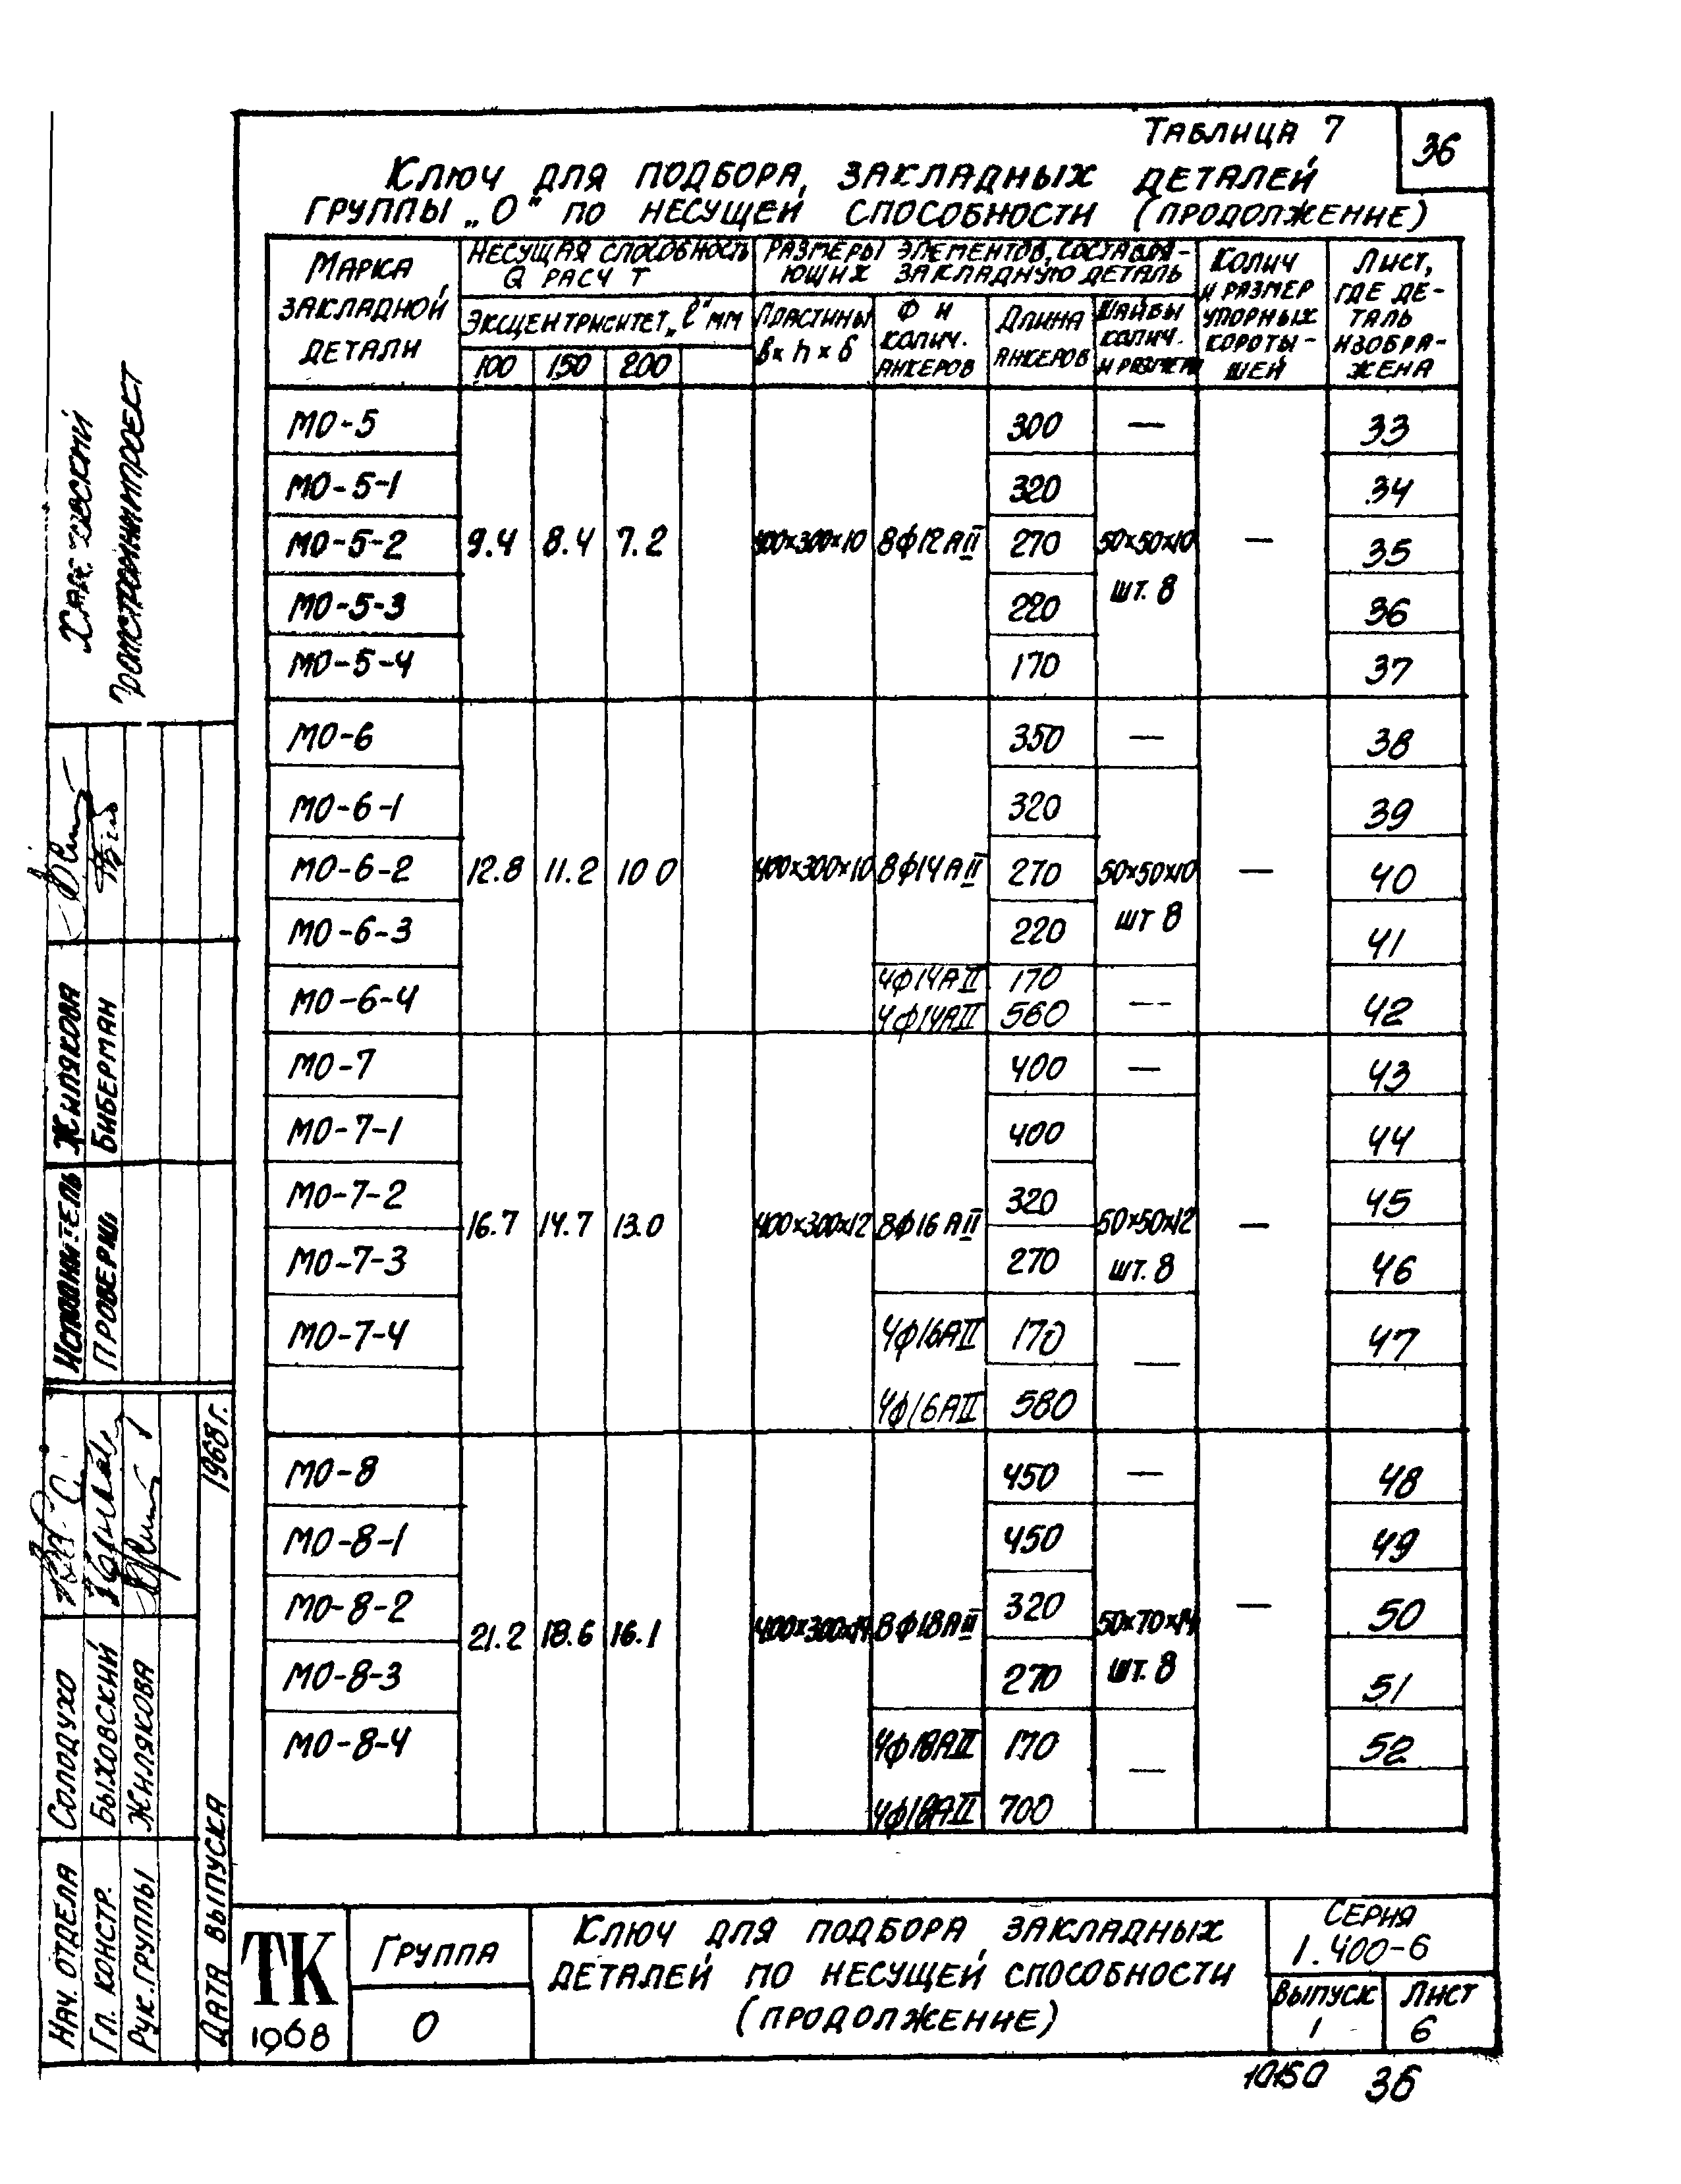 Таблица 7
36
Ключ для подбора закладных деталей
группы „О" по несущей способности (продолжение)
Марка закладной детали
Несущая способность Q расч т
Эксцентриситет „ℓ" мм
100 150 200
Размеры элементов, составляющих закладную деталь
Пластины в×h×δ
Ф и колич. анкеров
Длина анкеров
Шайбы колич. и размеры
Колич и размер упорных коротышей
Лист, где деталь изображена
МО-5 300 — 33
МО-5-1 320 34
МО-5-2 9.4 8.4 7.2 400×300×10 8ф12АII 270 50×50×10 — 35
МО-5-3 220 шт. 8 36
МО-5-4 170 37
МО-6 350 — 38
МО-6-1 320 39
МО-6-2 12.8 11.2 10 0 400×300×10 8ф14АII 270 50×50×10 — 40
МО-6-3 220 шт 8 41
4ф14АII 170
МО-6-4 — 42
4ф14АII 560
МО-7 400 — 43
МО-7-1 400 44
МО-7-2 320 45
16.7 14.7 13.0 400×300×12 8ф16АII 50×50×12 —
МО-7-3 270 шт. 8 46
МО-7-4 4ф16АII 170 47
—
4ф16АII 580
МО-8 450 — 48
МО-8-1 450 49
МО-8-2 320 — 50
21.2 18.6 16.1 400×300×14 8ф18АII 50×70×14
МО-8-3 270 шт. 8 51
МО-8-4 4ф18АII 170 52
—
4ф18АII 700
ТК
1968
Группа
О
Ключ для подбора закладных
деталей по несущей способности
(продолжение)
Серия
1.400-6
Выпуск
1
Лист
6
10150 36
Промстройниипроект
Исполнитель Жилякова
Проверил Биберман
Нач. отдела Солодухо
Гл. констр. Быховский
Рук. группы Жилякова
Дата выпуска 1968 г.